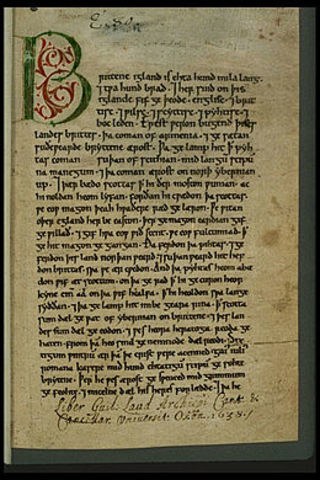 Brittene igland is ehta hund mila lang.
⁊ tƿa hund brad. ⁊ her sind on þis
iglande fif geþeode. englisc. ⁊ brit
tisc. ⁊ ƿilsc. ⁊ scyttisc. ⁊ pyhtisc. ⁊
boc leden. Erest ƿeron bugend þises
landes brittes. þa coman of armenia. ⁊ gesætan
suðeƿearde bryttene ærost. Þa gelamp hit ꝥ pyh
tas coman suþan of scithian. mid langū scipū
na manegum. ⁊ þa coman ærost on norþ ybernian
up. ⁊ þær bædo scottas ꝥ hi ðer moston ƿunian. ac
hi noldan heom lyfan. forðan hi cƿædon þa scottas.
ƿe eoƿ magon þeah hƿaðere ræd gelæron. Ƿe ƿitan
oþer egland her be easton. þer ge magon eardian gif
ge ƿillað. ⁊ gif hƿa eoƿ ƿið stent. ƿe eoƿ fultumiað. ꝥ
ge hit magon gegangan. Ða ferdon þa pihtas. ⁊ ge
ferdon þis land norþan ƿeard. ⁊ suþan ƿeard hit hef
don brittas. sƿa ƿe ær cƿedon. And þa pyhtas heom abæ
don ƿif æt scottum. on þa gerad ꝥ hi gecuron heora
kyne cinn aa on þa ƿif healfa. ꝥ hi heoldon sƿa lange
syððan. ⁊ þa gelamp hit imbe geara rina. ꝥ scotta
sum dæl geƿat of ybernian on brittene. ⁊ þes lan
des sum dæl geeodon. ⁊ ƿes heora heratoga. reoda ge
haten. from þā heo sind genemnode dæl reodi. Six
tigum ƿintrum ær þā þe crist ƿere acenned. gaius iulius
romana kasere mid hund ehtatigum scipū gesohte
brytene. Þer he ƿes ærost gesƿenced mid grimmum
gefeohte. ⁊ micelne dæl his heres forlædde. ⁊ þa he
Liber Guil. Laud Archiepi Cant. &
Cancellar. Universit. Oxon. 1638.